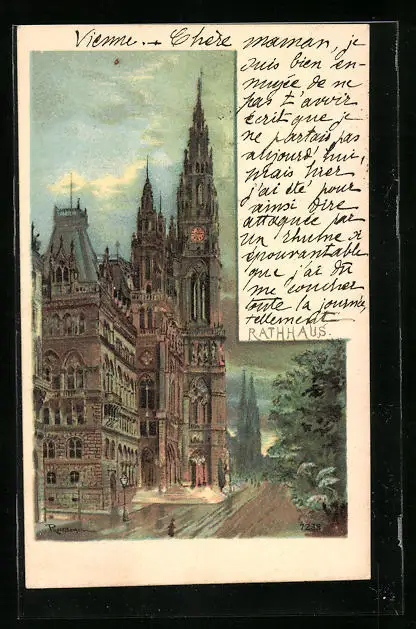 Vienne. - Chère maman, je
suis bien en-
nuyée de ne
pas t'avoir
écrit que je
ne partais pas
aujourd'hui,
mais hier
j'ai été pour
ainsi dire
attaquée par
un rhume si
épouvantable
que j'ai dû
me coucher
toute la journée,
tellement
RATHHAUS.
7238